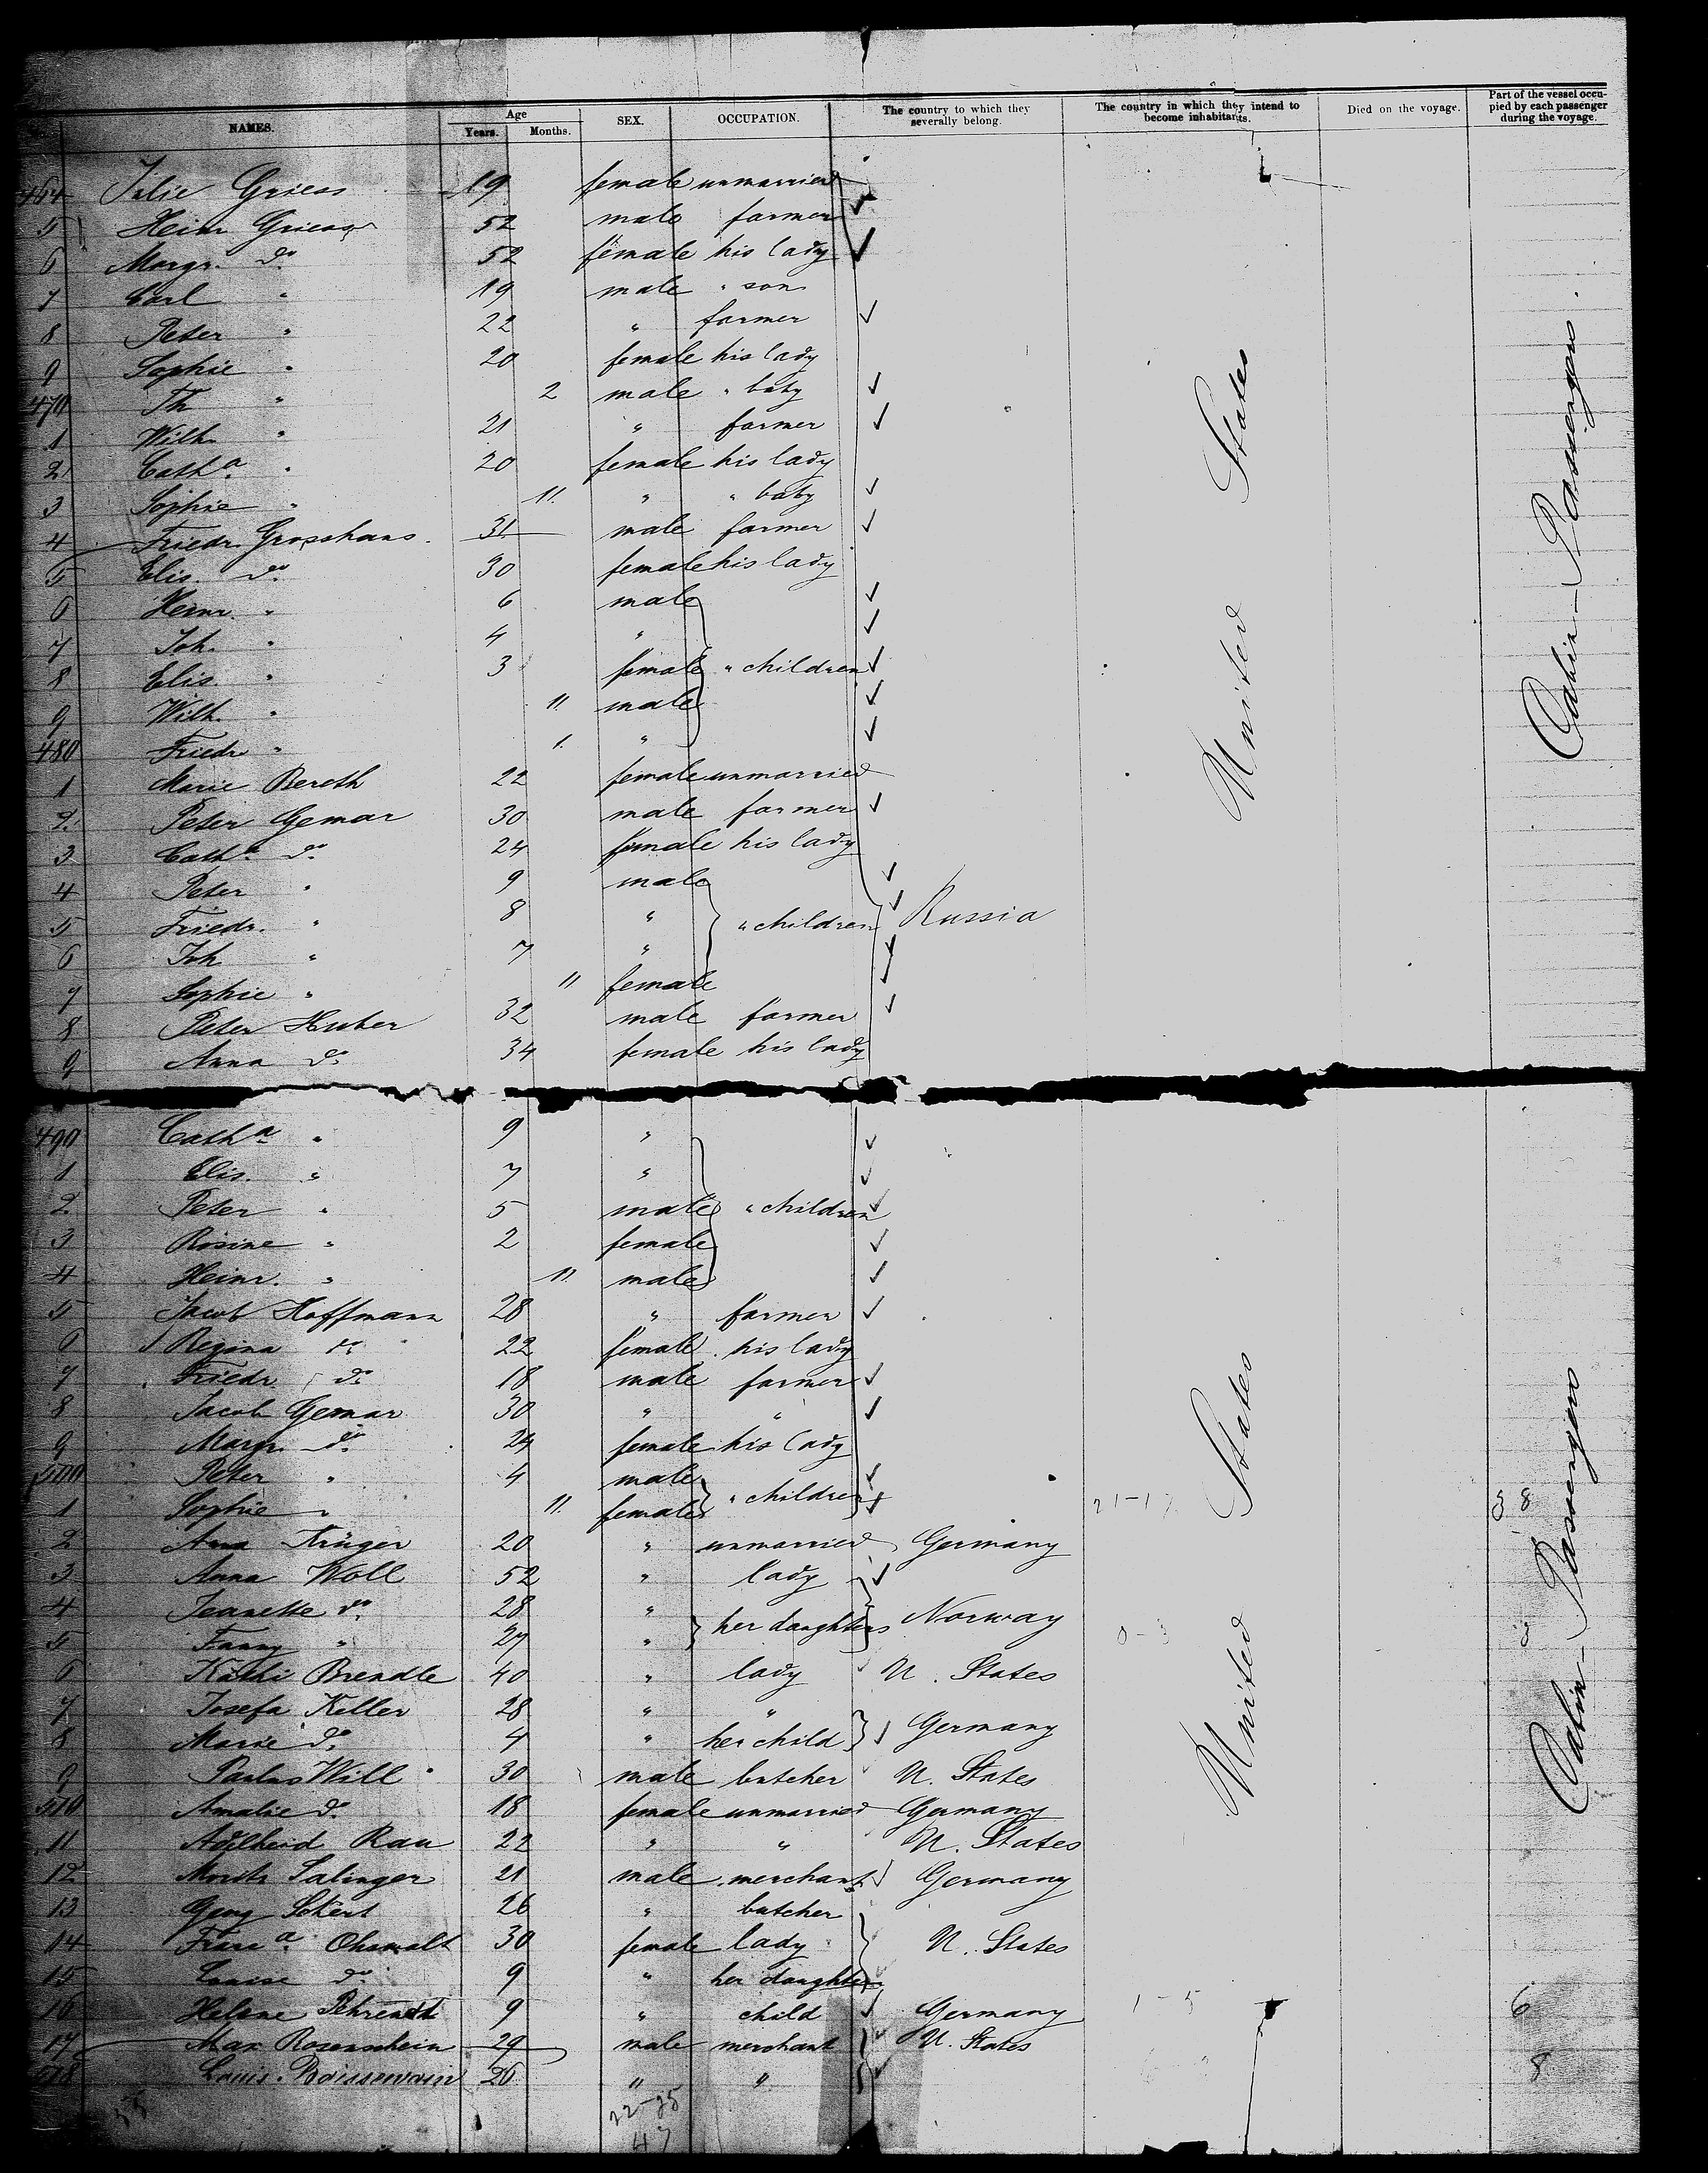 NAMES. Age Years. Months. SEX. OCCUPATION. The country to which they severally belong. The country in which they intend to become inhabitants. Died on the voyage. Part of the vessel occupied by each passenger during the voyage.
464 Julie Griess 19 female unmarried
5 Heinr Griess 52 male farmer
6 Margr. do 52 female his lady
7 Carl " 19 male " son
8 Peter " 22 " farmer
9 Sophie " 20 female his lady
470 Th " 2 male " baby
1 Wilh " 21 " farmer
2 Catha " 20 female his lady
3 Sophie " 11 " " baby
4 Friedr. Grosshans 31 male farmer
5 Elis. do 30 female his lady
6 Heinr. " 6 male
7 Joh. " 4 "
8 Elis. " 3 female " children
9 Wilh. " 11 male
480 Friedr " 1 "
1 Marie Bereth 22 female unmarried
2 Peter Gemar 30 male farmer
3 Catha do 24 female his lady
4 Peter " 9 male
5 Friedr. " 8 " " children Russia
6 Joh " 7 "
7 Sophie " 11 female
8 Peter Huber 32 male farmer
9 Anna do 34 female his lady
United States
Cabin-Passengers
490 Catha " 9 "
1 Elis. " 7 "
2 Peter " 5 male " children
3 Rosine " 2 female
4 Heinr. " 11 male
5 Jacob Hoffmann 28 " farmer
6 Regina do 22 female his lady
7 Friedr. do 18 male farmer
8 Jacob Gemar 30 " "
9 Margr. do 24 female his lady
500 Peter " 4 male
1 Sophie " 11 female " children 21-17 38
2 Anna Krüger 20 " unmarried Germany
3 Anna Woll 52 " lady
4 Jeanette do 28 " her daughters Norway
5 Fanny " 27 " 0-3 3
6 Kathi Brendle 40 " lady U. States
7 Josefa Keller 28 " "
8 Marie do 4 " her child Germany
9 Paulus Will 30 male butcher U. States
510 Amalie do 18 female unmarried Germany
11 Adelheid Rau 22 " " U. States
12 Moritz Salinger 21 male merchant Germany
13 Georg 26 " butcher
14 Franca 30 female lady U. States
15 Louise do 9 " her daughter
16 Helene 9 " child Germany 1-5 6
17 Max Rosenschein 29 male merchant U. States
518 Louis Boissevain 26 " " 8
United States
Cabin-Passengers
22-25
47